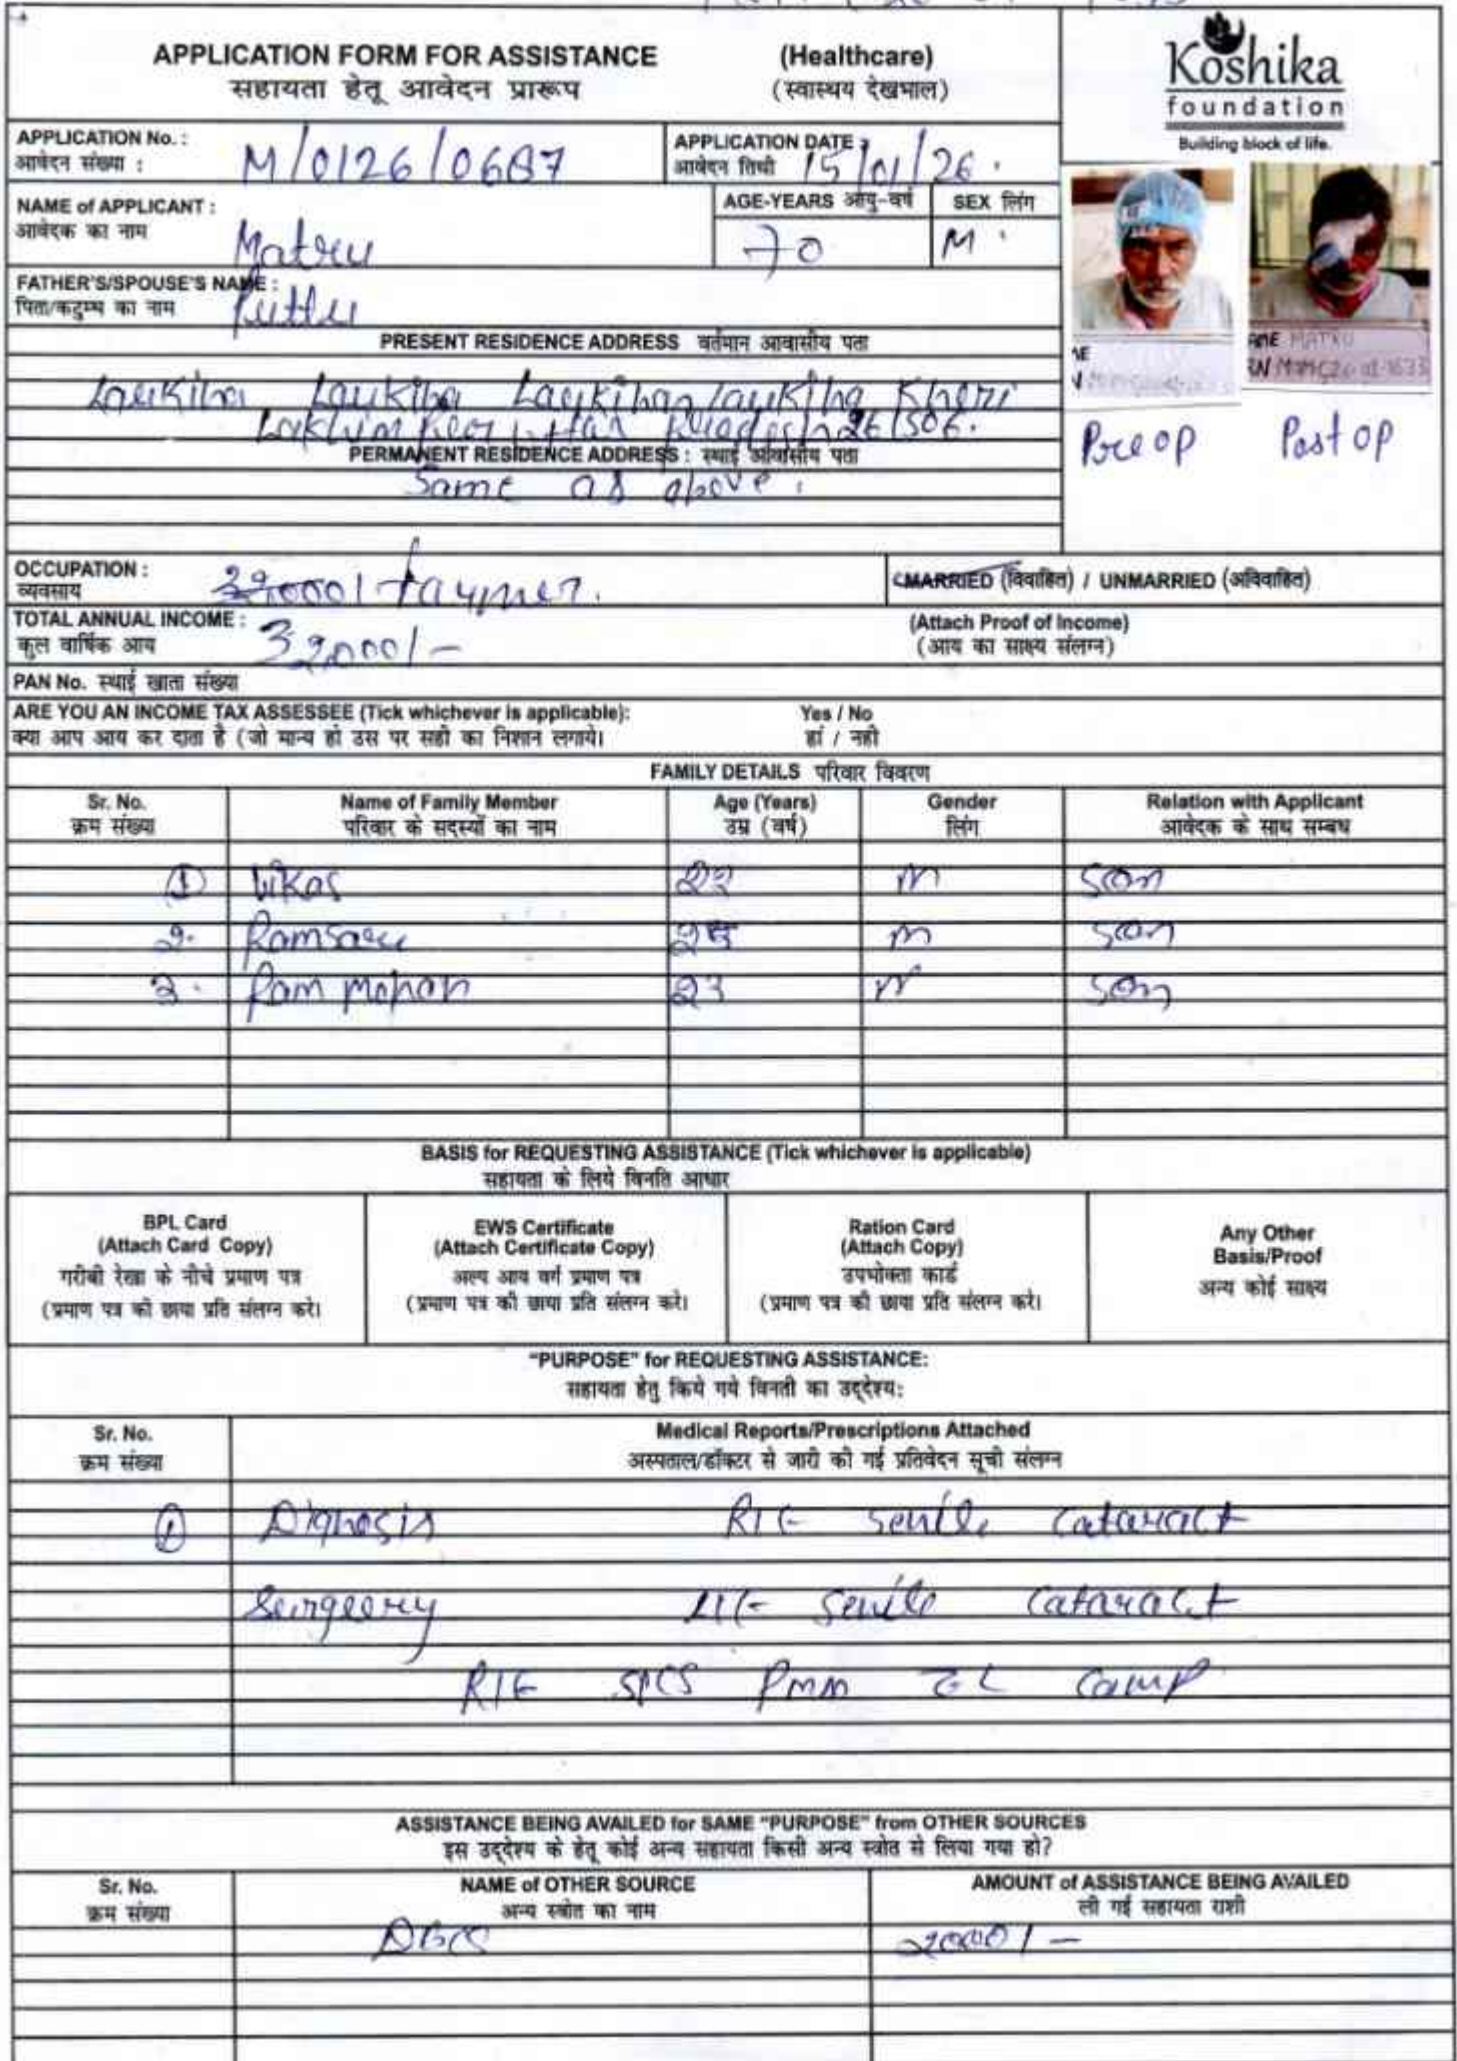 APPLICATION FORM FOR ASSISTANCE (Healthcare)
सहायता हेतू आवेदन प्रारूप (स्वास्थय देखभाल)
Koshika
foundation
Building block of life.
APPLICATION No. : M/0126/0687
आवेदन संख्या :
APPLICATION DATE : 15/01/26.
आवेदन तिथी
NAME of APPLICANT : Matru
आवेदक का नाम
AGE-YEARS आयु-वर्ष 70
SEX लिंग M
FATHER'S/SPOUSE'S NAME : Puttu
पिता/कटुम्ब का नाम
NAME MATRU
Pre op Post op
PRESENT RESIDENCE ADDRESS वर्तमान आवासीय पता
Laukiha Laukiha Laukihan Laukiha Kheri
Lakhimpeor Uttar Pradesh 261506.
PERMANENT RESIDENCE ADDRESS : स्थाई आवासीय पता
Same as above.
OCCUPATION : farmer.
व्यवसाय
MARRIED (विवाहित) / UNMARRIED (अविवाहित)
TOTAL ANNUAL INCOME : 32000/-
कुल वार्षिक आय
(Attach Proof of Income)
(आय का साक्ष्य संलग्न)
PAN No. स्थाई खाता संख्या
ARE YOU AN INCOME TAX ASSESSEE (Tick whichever is applicable): Yes / No
क्या आप आय कर दाता है (जो मान्य हो उस पर सही का निशान लगाये। हां / नही
FAMILY DETAILS परिवार विवरण
Sr. No. Name of Family Member Age (Years) Gender Relation with Applicant
क्रम संख्या परिवार के सदस्यों का नाम उम्र (वर्ष) लिंग आवेदक के साथ सम्बध
1 Vikas 22 M son
2. Ramsaru M son
3. Ram mohan 23 M son
BASIS for REQUESTING ASSISTANCE (Tick whichever is applicable)
सहायता के लिये विनति आधार
BPL Card
(Attach Card Copy)
गरीबी रेखा के नीचे प्रमाण पत्र
(प्रमाण पत्र की छाया प्रति संलग्न करे।
EWS Certificate
(Attach Certificate Copy)
अल्प आय वर्ग प्रमाण पत्र
(प्रमाण पत्र की छाया प्रति संलग्न करे।
Ration Card
(Attach Copy)
उपभोक्ता कार्ड
(प्रमाण पत्र की छाया प्रति संलग्न करे।
Any Other
Basis/Proof
अन्य कोई साक्ष्य
"PURPOSE" for REQUESTING ASSISTANCE:
सहायता हेतु किये गये विनती का उद्देश्य:
Sr. No. Medical Reports/Prescriptions Attached
क्रम संख्या अस्पताल/डॉक्टर से जारी की गई प्रतिवेदन सूची संलग्न
1 Dignosis R/E senile cataract
Surgeery L/E senile cataract
R/E SICS PMM camp
ASSISTANCE BEING AVAILED for SAME "PURPOSE" from OTHER SOURCES
इस उद्देश्य के हेतू कोई अन्य सहायता किसी अन्य स्त्रोत से लिया गया हो?
Sr. No. NAME of OTHER SOURCE AMOUNT of ASSISTANCE BEING AVAILED
क्रम संख्या अन्य स्त्रोत का नाम ली गई सहायता राशी
2000/-